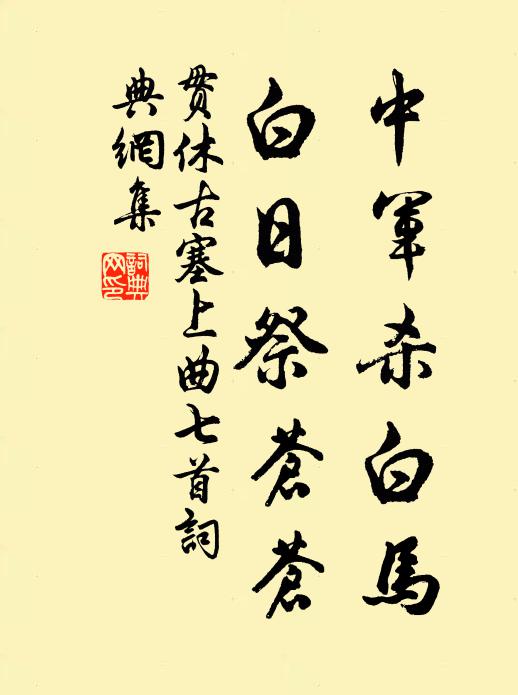 中軍杀白馬
白日祭蒼蒼
貫休古塞上曲七首詞
典網集
詞典
网印